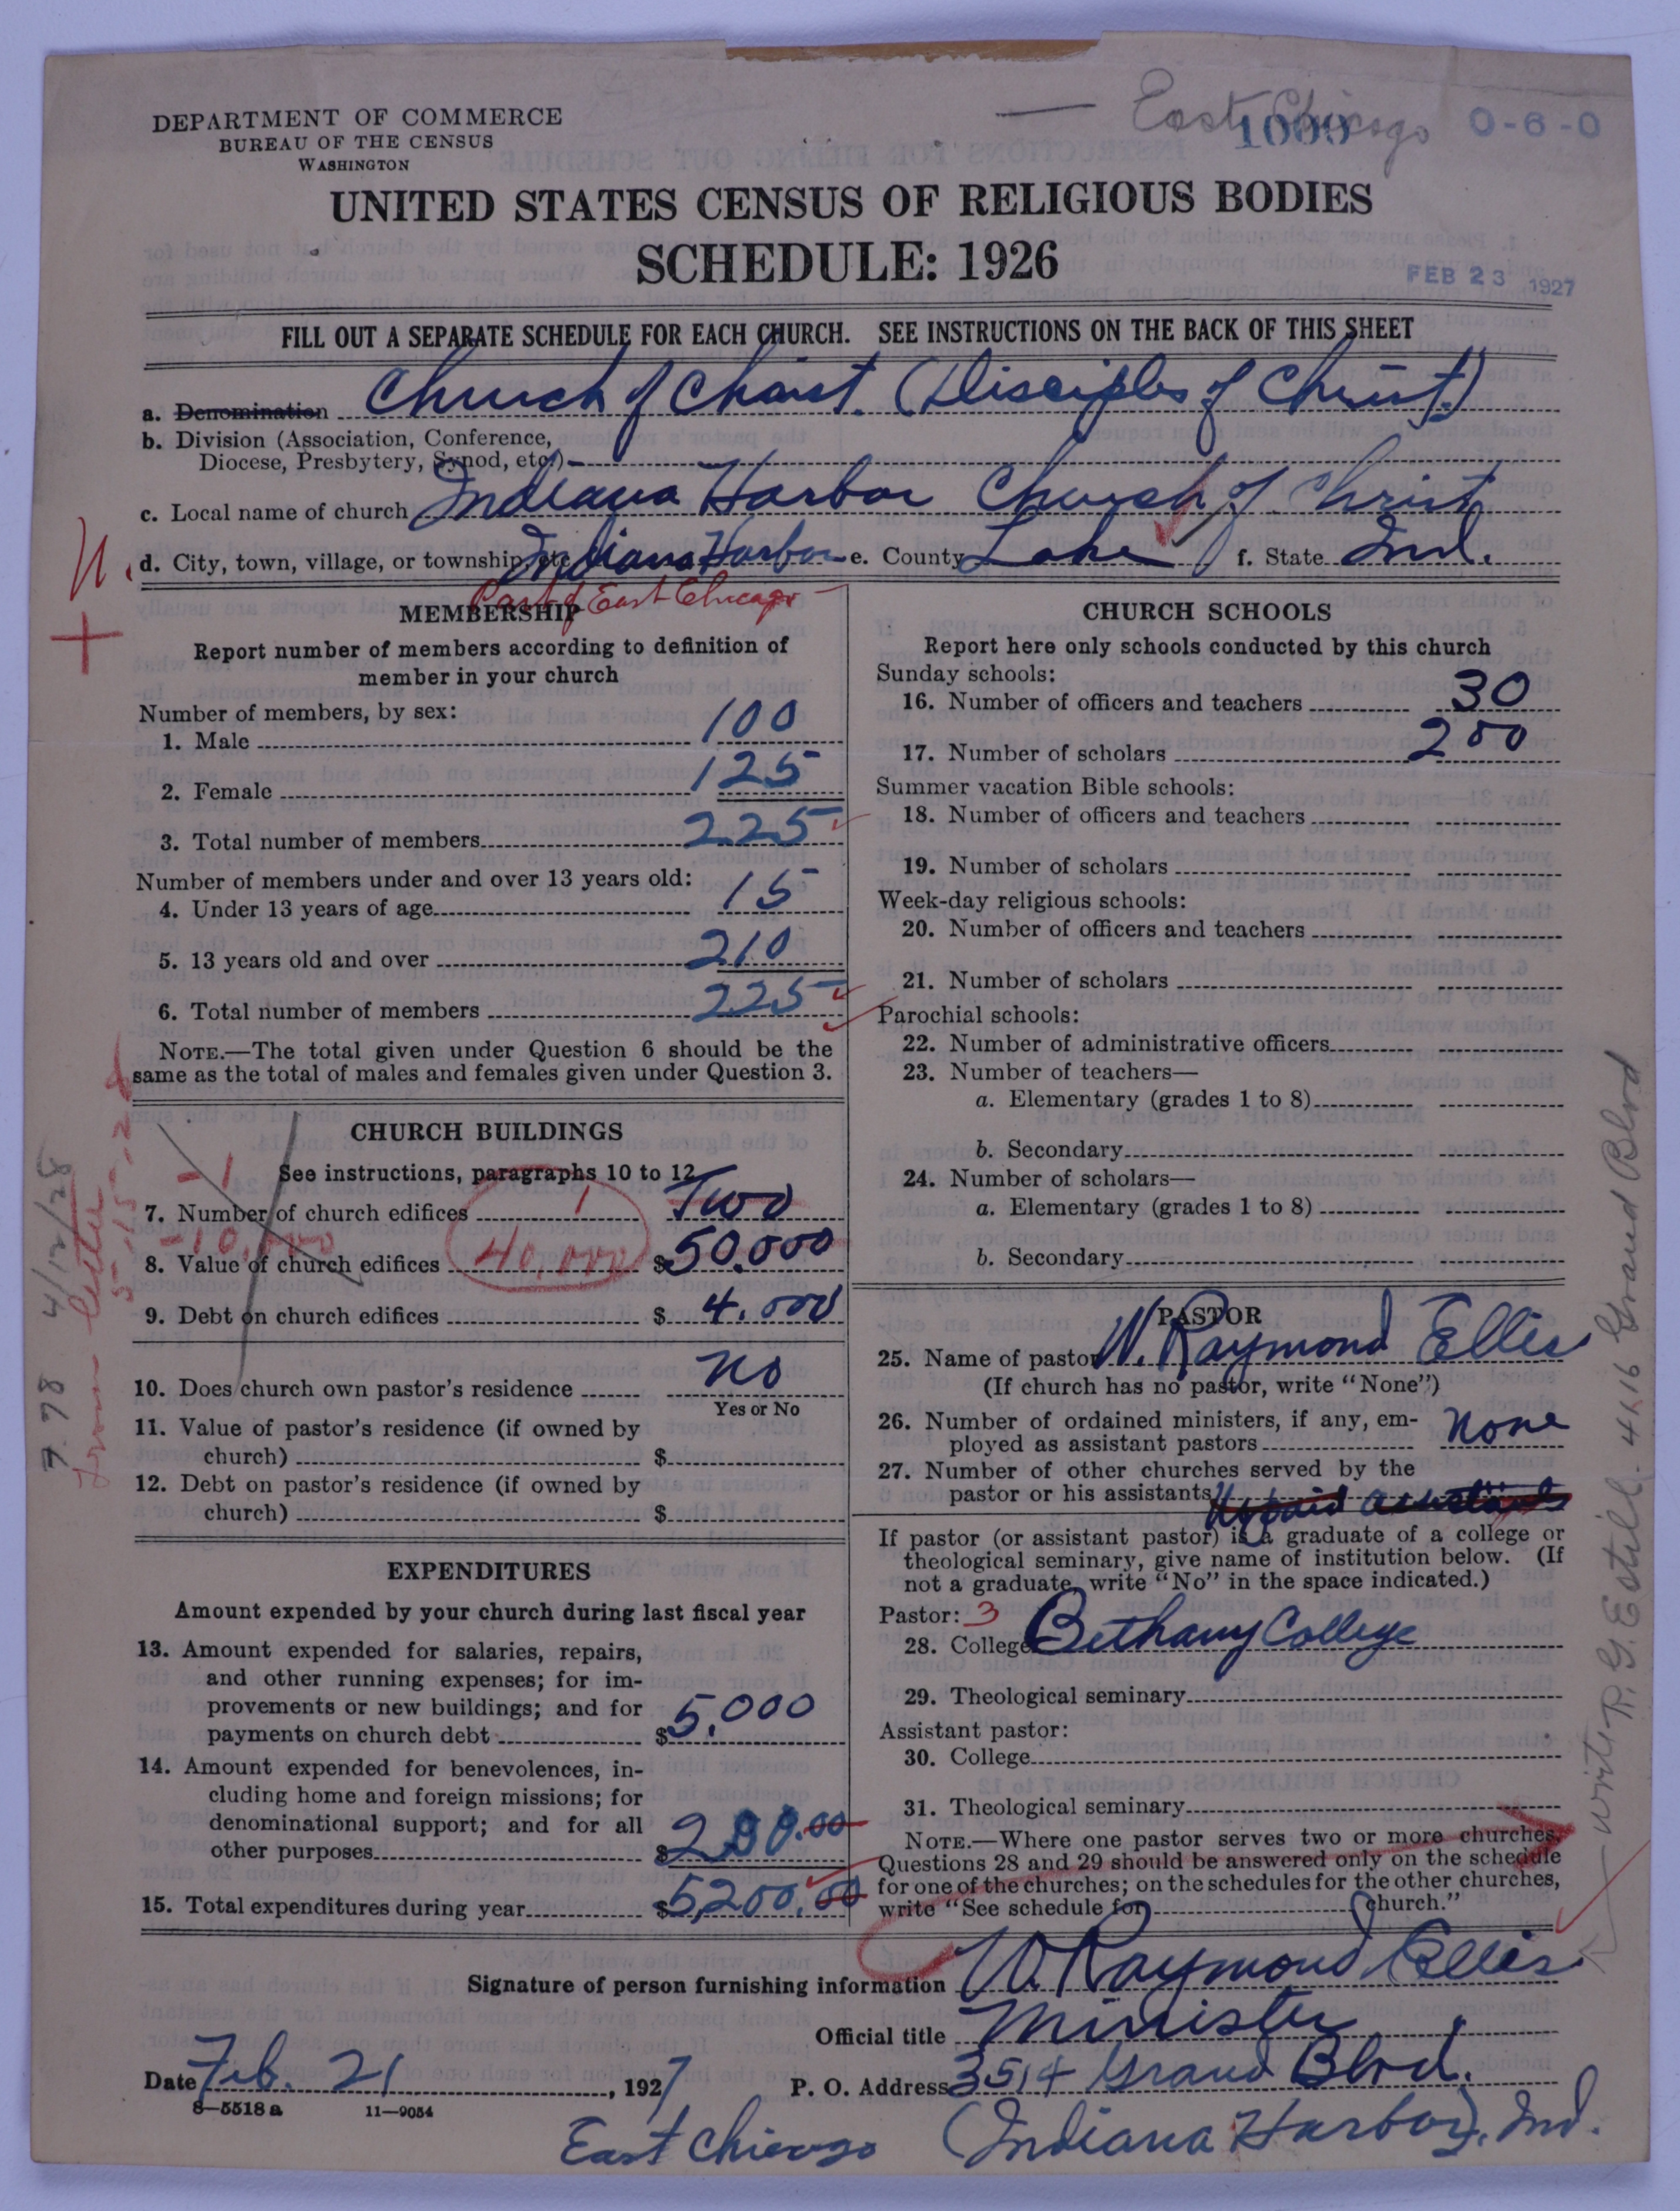 East Chicago
1000 0-6-0
DEPARTMENT OF COMMERCE
BUREAU OF THE CENSUS
WASHINGTON
UNITED STATES CENSUS OF RELIGIOUS BODIES
SCHEDULE: 1926
FEB 23 1927
FILL OUT A SEPARATE SCHEDULE FOR EACH CHURCH. SEE INSTRUCTIONS ON THE BACK OF THIS SHEET
a. Denomination Church of Christ. (Disciples of Christ.)
b. Division (Association, Conference,
Diocese, Presbytery, Synod, etc.)
c. Local name of church Indiana Harbor Church of Christ
d. City, town, village, or township, etc. Indiana Harbor e. County Lake f. State Ind.
Part of East Chicago
MEMBERSHIP
Report number of members according to definition of
member in your church
Number of members, by sex:
1. Male 100
2. Female 125
3. Total number of members 225
Number of members under and over 13 years old:
4. Under 13 years of age 15
5. 13 years old and over 210
6. Total number of members 225
NOTE.—The total given under Question 6 should be the
same as the total of males and females given under Question 3.
CHURCH BUILDINGS
-1
See instructions, paragraphs 10 to 12
7. Number of church edifices 1 Two
-10,000
8. Value of church edifices 40,000 $50.000
9. Debt on church edifices $ 4.000
10. Does church own pastor's residence No
Yes or No
11. Value of pastor's residence (if owned by
church) $
12. Debt on pastor's residence (if owned by
church) $
7.78 4/12/28
from letter
EXPENDITURES
Amount expended by your church during last fiscal year
13. Amount expended for salaries, repairs,
and other running expenses; for im-
provements or new buildings; and for
payments on church debt $5.000
14. Amount expended for benevolences, in-
cluding home and foreign missions; for
denominational support; and for all
other purposes $200.00
15. Total expenditures during year $5,200.00
CHURCH SCHOOLS
Report here only schools conducted by this church
Sunday schools:
16. Number of officers and teachers 30
17. Number of scholars 200
Summer vacation Bible schools:
18. Number of officers and teachers
19. Number of scholars
Week-day religious schools:
20. Number of officers and teachers
21. Number of scholars
Parochial schools:
22. Number of administrative officers
23. Number of teachers—
a. Elementary (grades 1 to 8)
b. Secondary
24. Number of scholars—
a. Elementary (grades 1 to 8)
b. Secondary
PASTOR
25. Name of pastor W. Raymond Ellis
(If church has no pastor, write "None")
26. Number of ordained ministers, if any, em-
ployed as assistant pastors None
27. Number of other churches served by the
pastor or his assistants
If pastor (or assistant pastor) is a graduate of a college or
theological seminary, give name of institution below. (If
not a graduate, write "No" in the space indicated.)
Pastor: 3
28. College Bethany College
29. Theological seminary
Assistant pastor:
30. College
31. Theological seminary
NOTE.—Where one pastor serves two or more churches,
Questions 28 and 29 should be answered only on the schedule
for one of the churches; on the schedules for the other churches,
write "See schedule for church."
write R. G. Estill - 4116 Grand Blvd
Signature of person furnishing information W. Raymond Ellis
Official title Minister
Date Feb. 21, 1927 P. O. Address 3514 Grand Blvd.
8—5518a 11—9054
East Chicago (Indiana Harbor), Ind.